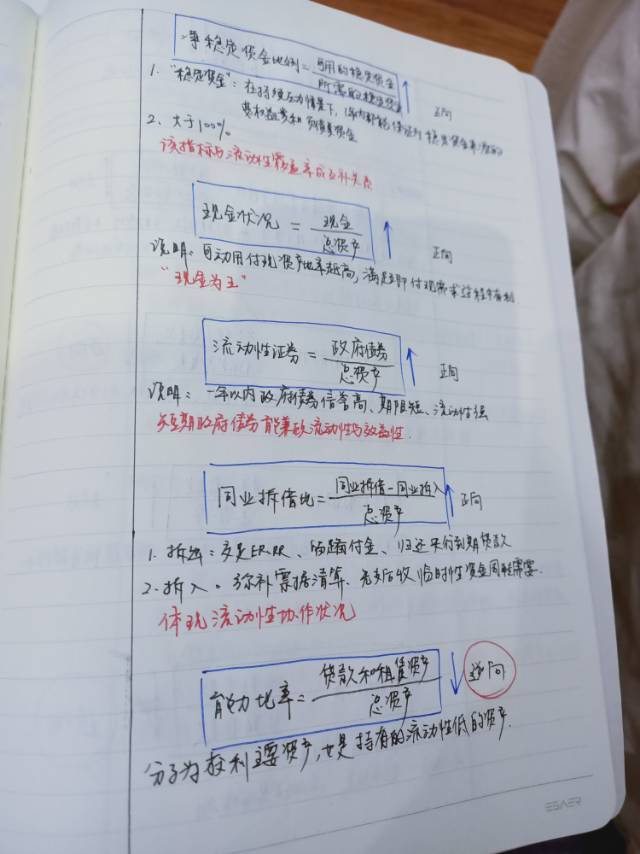 净稳定资金比例 = 可用的稳定资金 / 所需的稳定资金 ↑ 正向
1. “稳定资金”：在持续压力情景下，1年内都能保证 稳定资金来源的
权益类和负债类资金
2、大于100%
该指标与流动性覆盖率成互补关系
现金状况 = 现金 / 总资产 ↑ 正向
说明：可动用付现资产比率越高，满足即付现需求
“现金为王”
流动性证券 = 政府债券 / 总资产 ↑ 正向
说明：一年以内政府债券信誉高、期限短、流动性强
短期政府债券能兼顾流动性与效益性.
同业拆借比 = 同业拆借-同业拆入 / 总资产 ↑ 正向
1. 拆出：交足 付金、归还央行到期贷款
2. 拆入：弥补票据清算、先支后收 临时性资金周转需要.
体现流动性协作状况
能力比率 = 贷款和租赁资产 / 总资产 ↓ 逆向
分子为 利主要资产，也是持有的流动性低的资产.